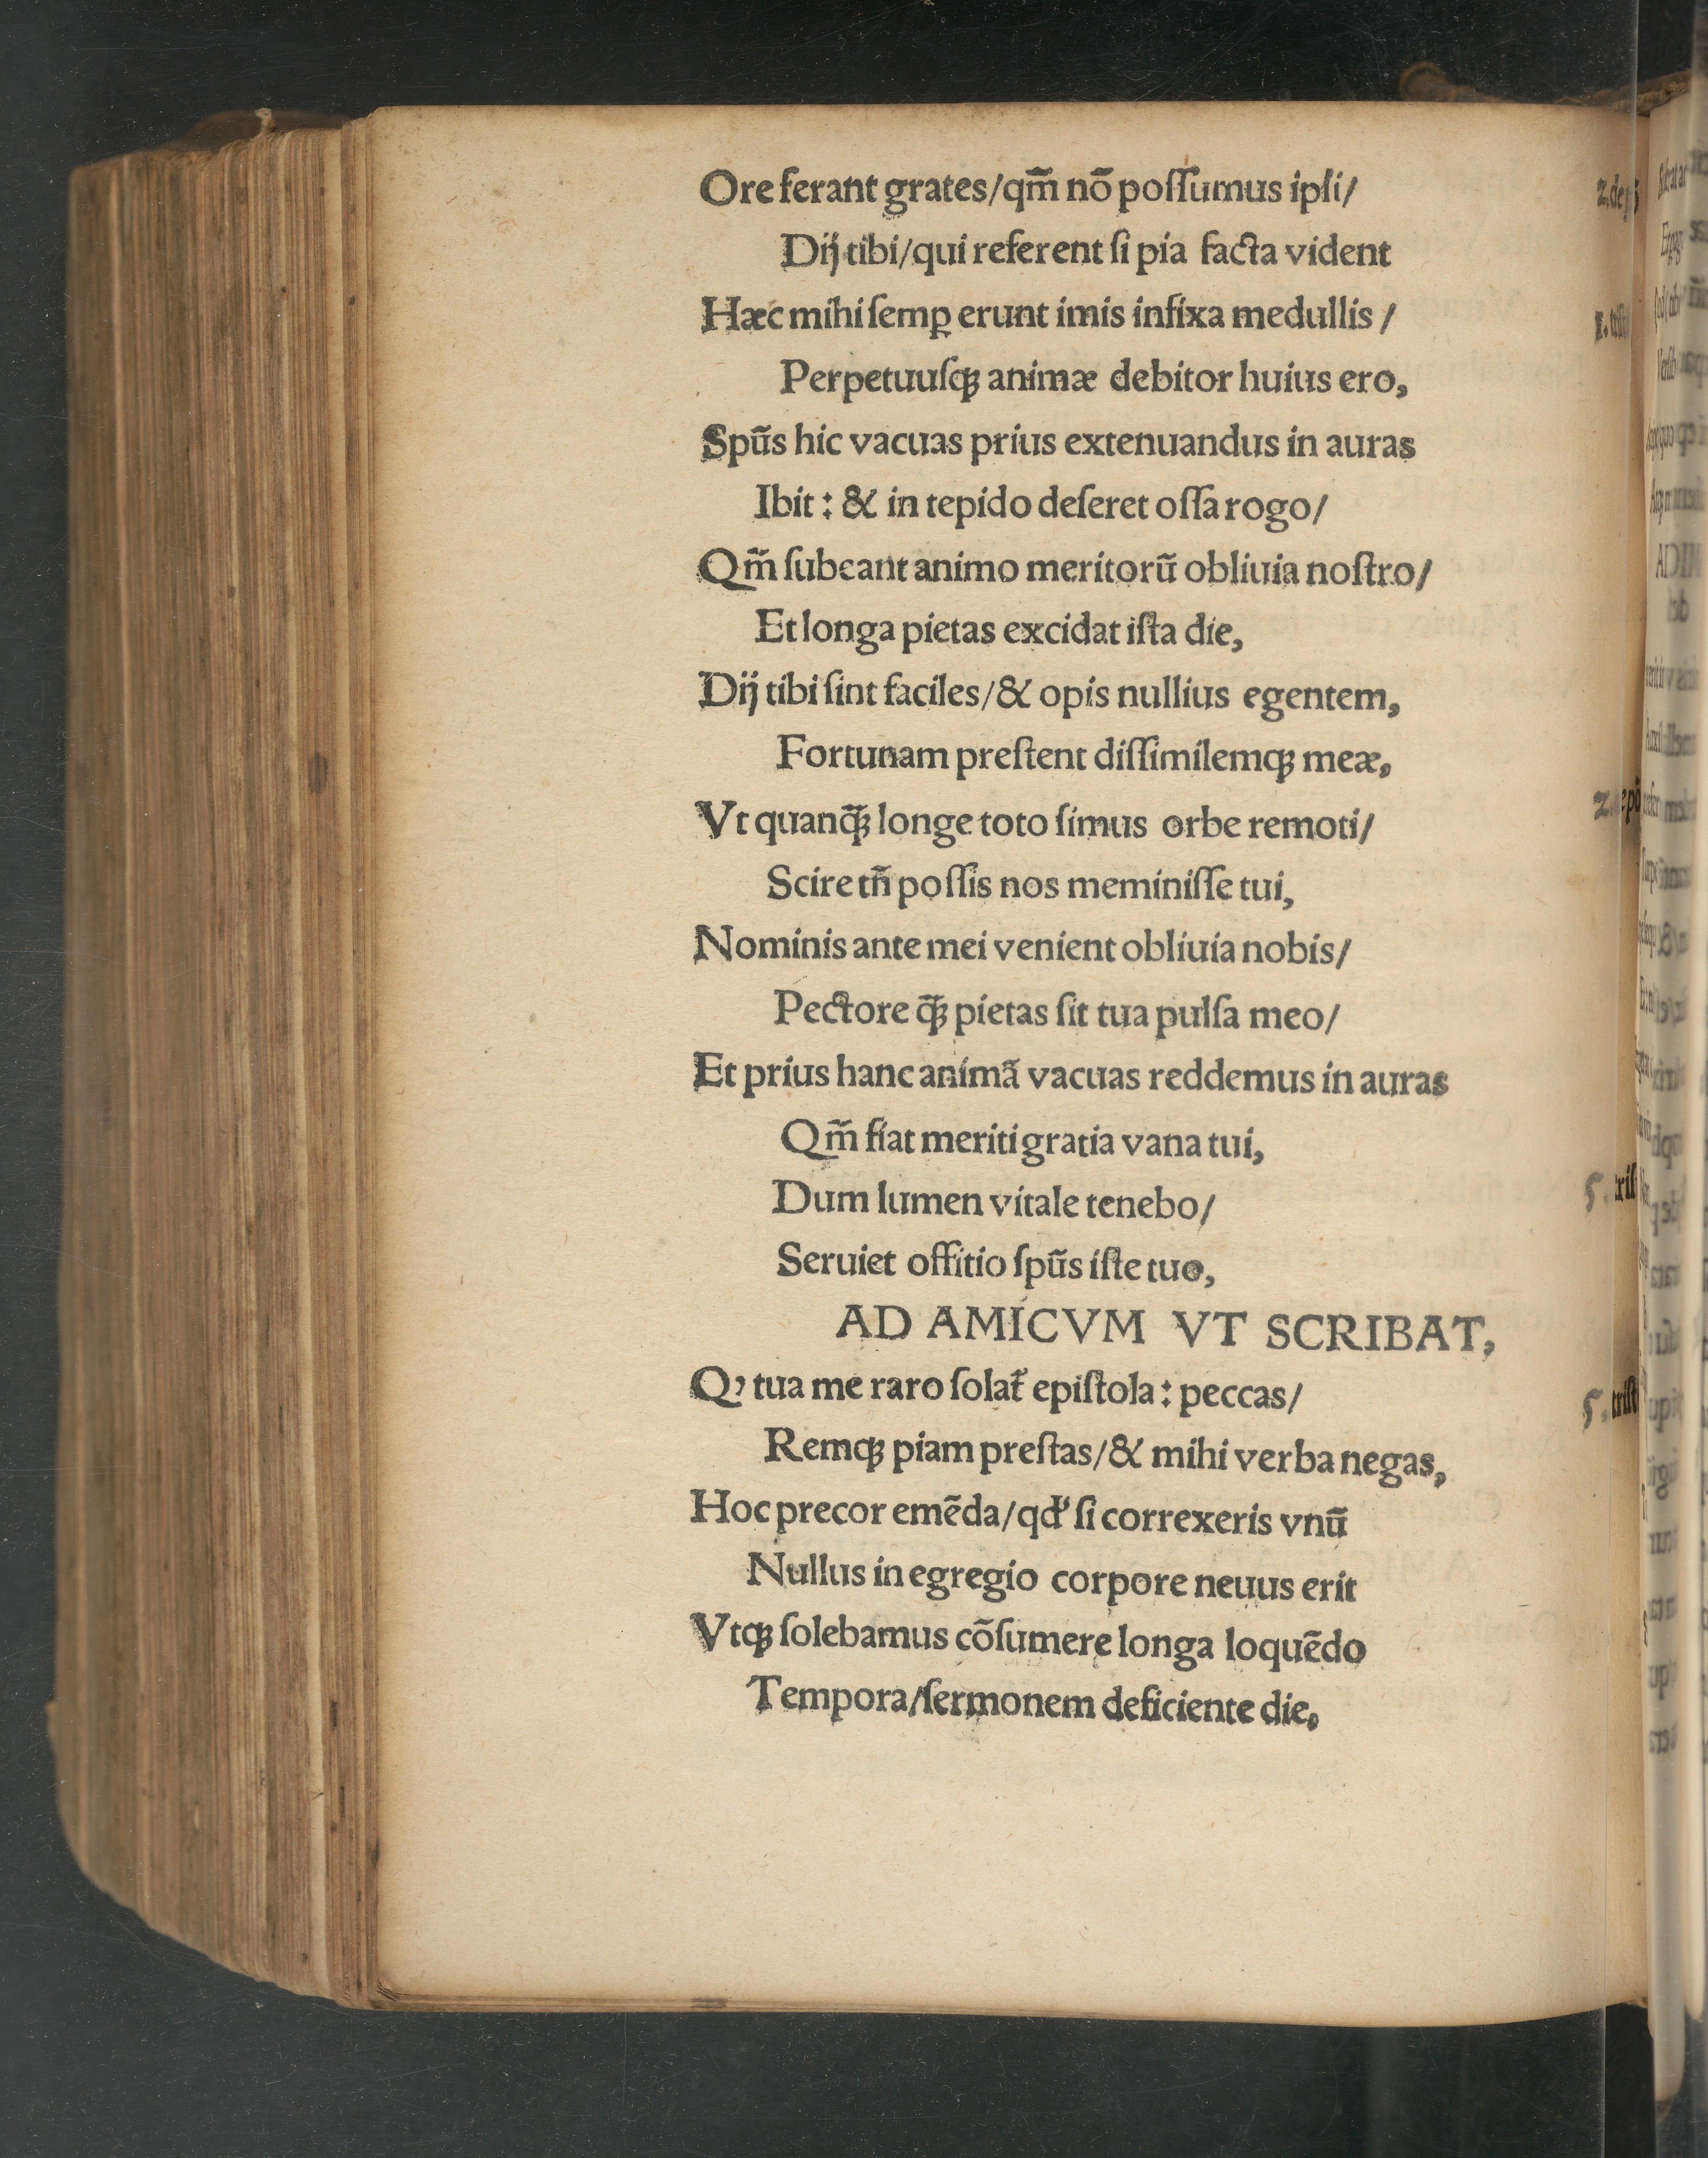 Ore ferant grates/qm̃ nõ poſſumus ipſi/
Dij tibi/qui referent ſi pia facta vident
Hæc mihi ſemꝑ erunt imis infixa medullis /
Perpetuuſqꝫ animæ debitor huius ero,
Spũs hic vacuas prius extenuandus in auras
Ibit : & in tepido deſeret oſſa rogo/
Qm̃ ſubeant animo meritorũ obliuia noſtro/
Et longa pietas excidat iſta die,
Dij tibi ſint faciles/& opis nullius egentem,
Fortunam preſtent diſſimilemqꝫ meæ,
Vt quanq̃ꝫ longe toto ſimus orbe remoti/
Scire tñ poſſis nos meminiſſe tui,
Nominis ante mei venient obliuia nobis/
Pectore q̃ꝫ pietas ſit tua pulſa meo/
Et prius hanc animã vacuas reddemus in auras
Qm̃ fiat meriti gratia vana tui,
Dum lumen vitale tenebo/
Seruiet offitio ſpũs iſte tuo,
AD AMICVM VT SCRIBAT,
Qꝫ tua me raro ſolat᷑ epiſtola : peccas/
Remqꝫ piam preſtas/& mihi verba negas,
Hoc precor emẽda/qd' ſi correxeris vnũ
Nullus in egregio corpore neuus erit
Vtqꝫ ſolebamus cõſumere longa loquẽdo
Tempora/ſermonem deficiente die,